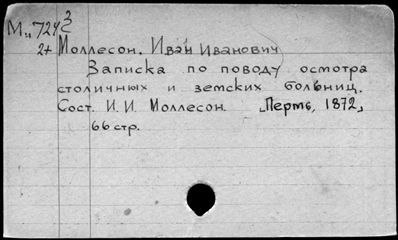 М 724
2+ Моллесон, Иван Иванович
Записка по поводу осмотра
столичных и земских больниц.
Сост. И. И. Моллесон. Пермь, 1872,
66 стр.